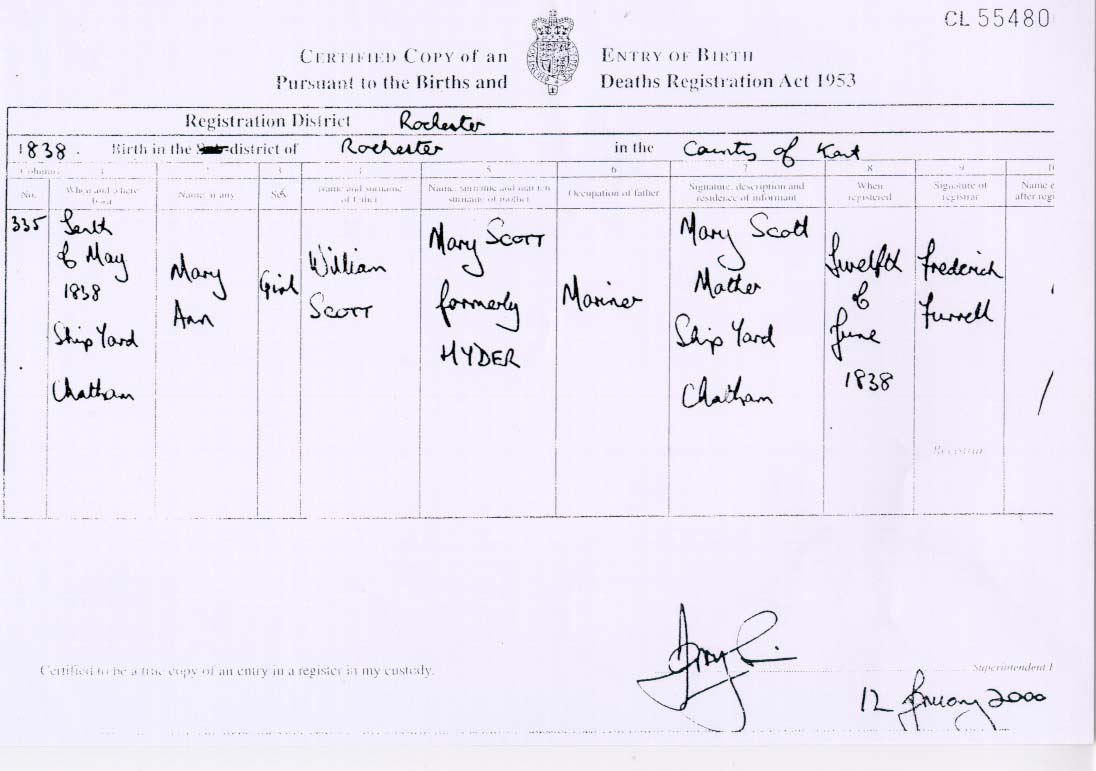 CL 55480
CERTIFIED COPY of an ENTRY OF BIRTH
Pursuant to the Births and Deaths Registration Act 1953
Registration District Rochester
1838. Birth in the Sub-district of Rochester in the County of Kent
Columns 1 2 3 4 5 6 7 8 9 10
No. When and where born Name, if any Sex Name and surname of father Name, surname and maiden surname of mother Occupation of father Signature, description and residence of informant When registered Signature of registrar Name e
after regi
335
Tenth
of May
1838
Ship Yard
Chatham
Mary
Ann
Girl
William
SCOTT
Mary SCOTT
formerly
HYDER
Mariner
Mary Scott
Mother
Ship Yard
Chatham
Twelfth
of
June
1838
Frederick
Furrell
Registrar
Certified to be a true copy of an entry in a register in my custody.
Superintendent R
12 January 2000